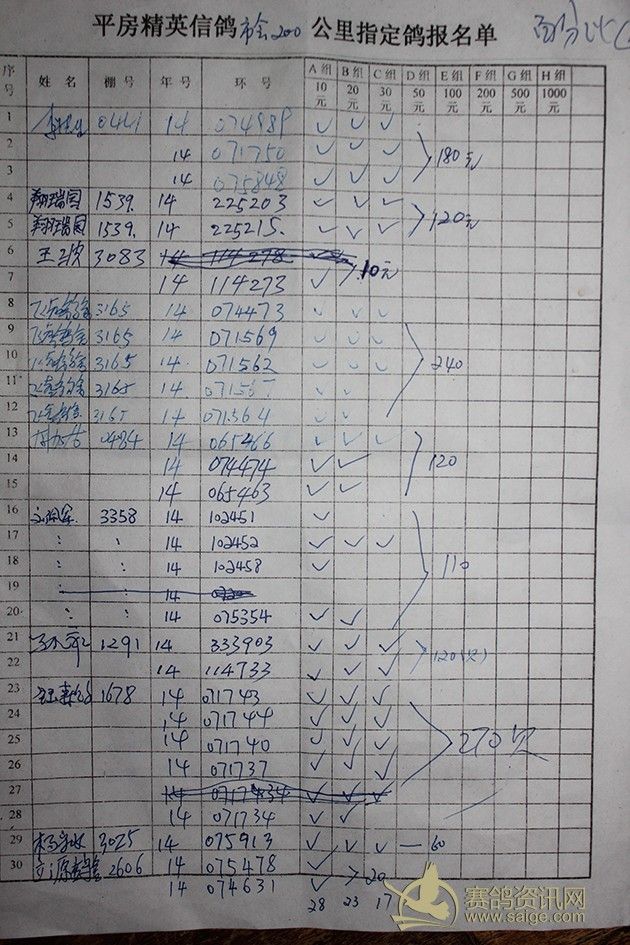 平房精英信鸽市会200公里指定鸽报名单 百分比
序号 姓 名 棚 号 年 号 环 号 A 组 10 元 B 组 20 元 C 组 30 元 D 组 50 元 E 组 100 元 F 组 200 元 G 组 500 元 H 组 1000 元
1 14 ✓ ✓ ✓
2 14 071750 ✓ ✓ ✓ 180元
3 14 075848 ✓ ✓ ✓
4 翔瑞园 1539. 14 225203 ✓ ✓ ✓
5 翔瑞园 1539. 14 225215. ✓ ✓ ✓ 120元
6 3083
7 14 114273 ✓ 10元
8 3165 14 074473 ✓ ✓ ✓
9 3165 14 071569 ✓ ✓ ✓
10 3165 14 071562 ✓ ✓ ✓ 240
11 3165 14 ✓ ✓
12 3165 14 071564 ✓ ✓
13 0484 14 065466 ✓ ✓ ✓
14 14 074474 ✓ ✓ 120
15 14 065463 ✓ ✓
16 3358 14 102451 ✓
17 : : 14 102452 ✓ ✓ ✓
18 : : 14 102458 ✓ 110
19 : : 14
20 : : 14 075354 ✓ ✓
21 1291 14 333903 ✓ ✓ ✓
22 14 114733 ✓ ✓ ✓ 120(欠)
23 1678 14 071743 ✓ ✓ ✓
24 14 071744 ✓ ✓ ✓
25 14 071740 ✓ ✓ ✓ 270欠
26 14 071737 ✓ ✓ ✓
27 14 ✓ ✓ ✓
28 14 071734 ✓ ✓
29 3025 14 075913 ✓ ✓ ✓ — 60
30 2606 14 075478 ✓
14 074631 ✓ 20
28 23 17
赛鸽资讯网
www.saige.com